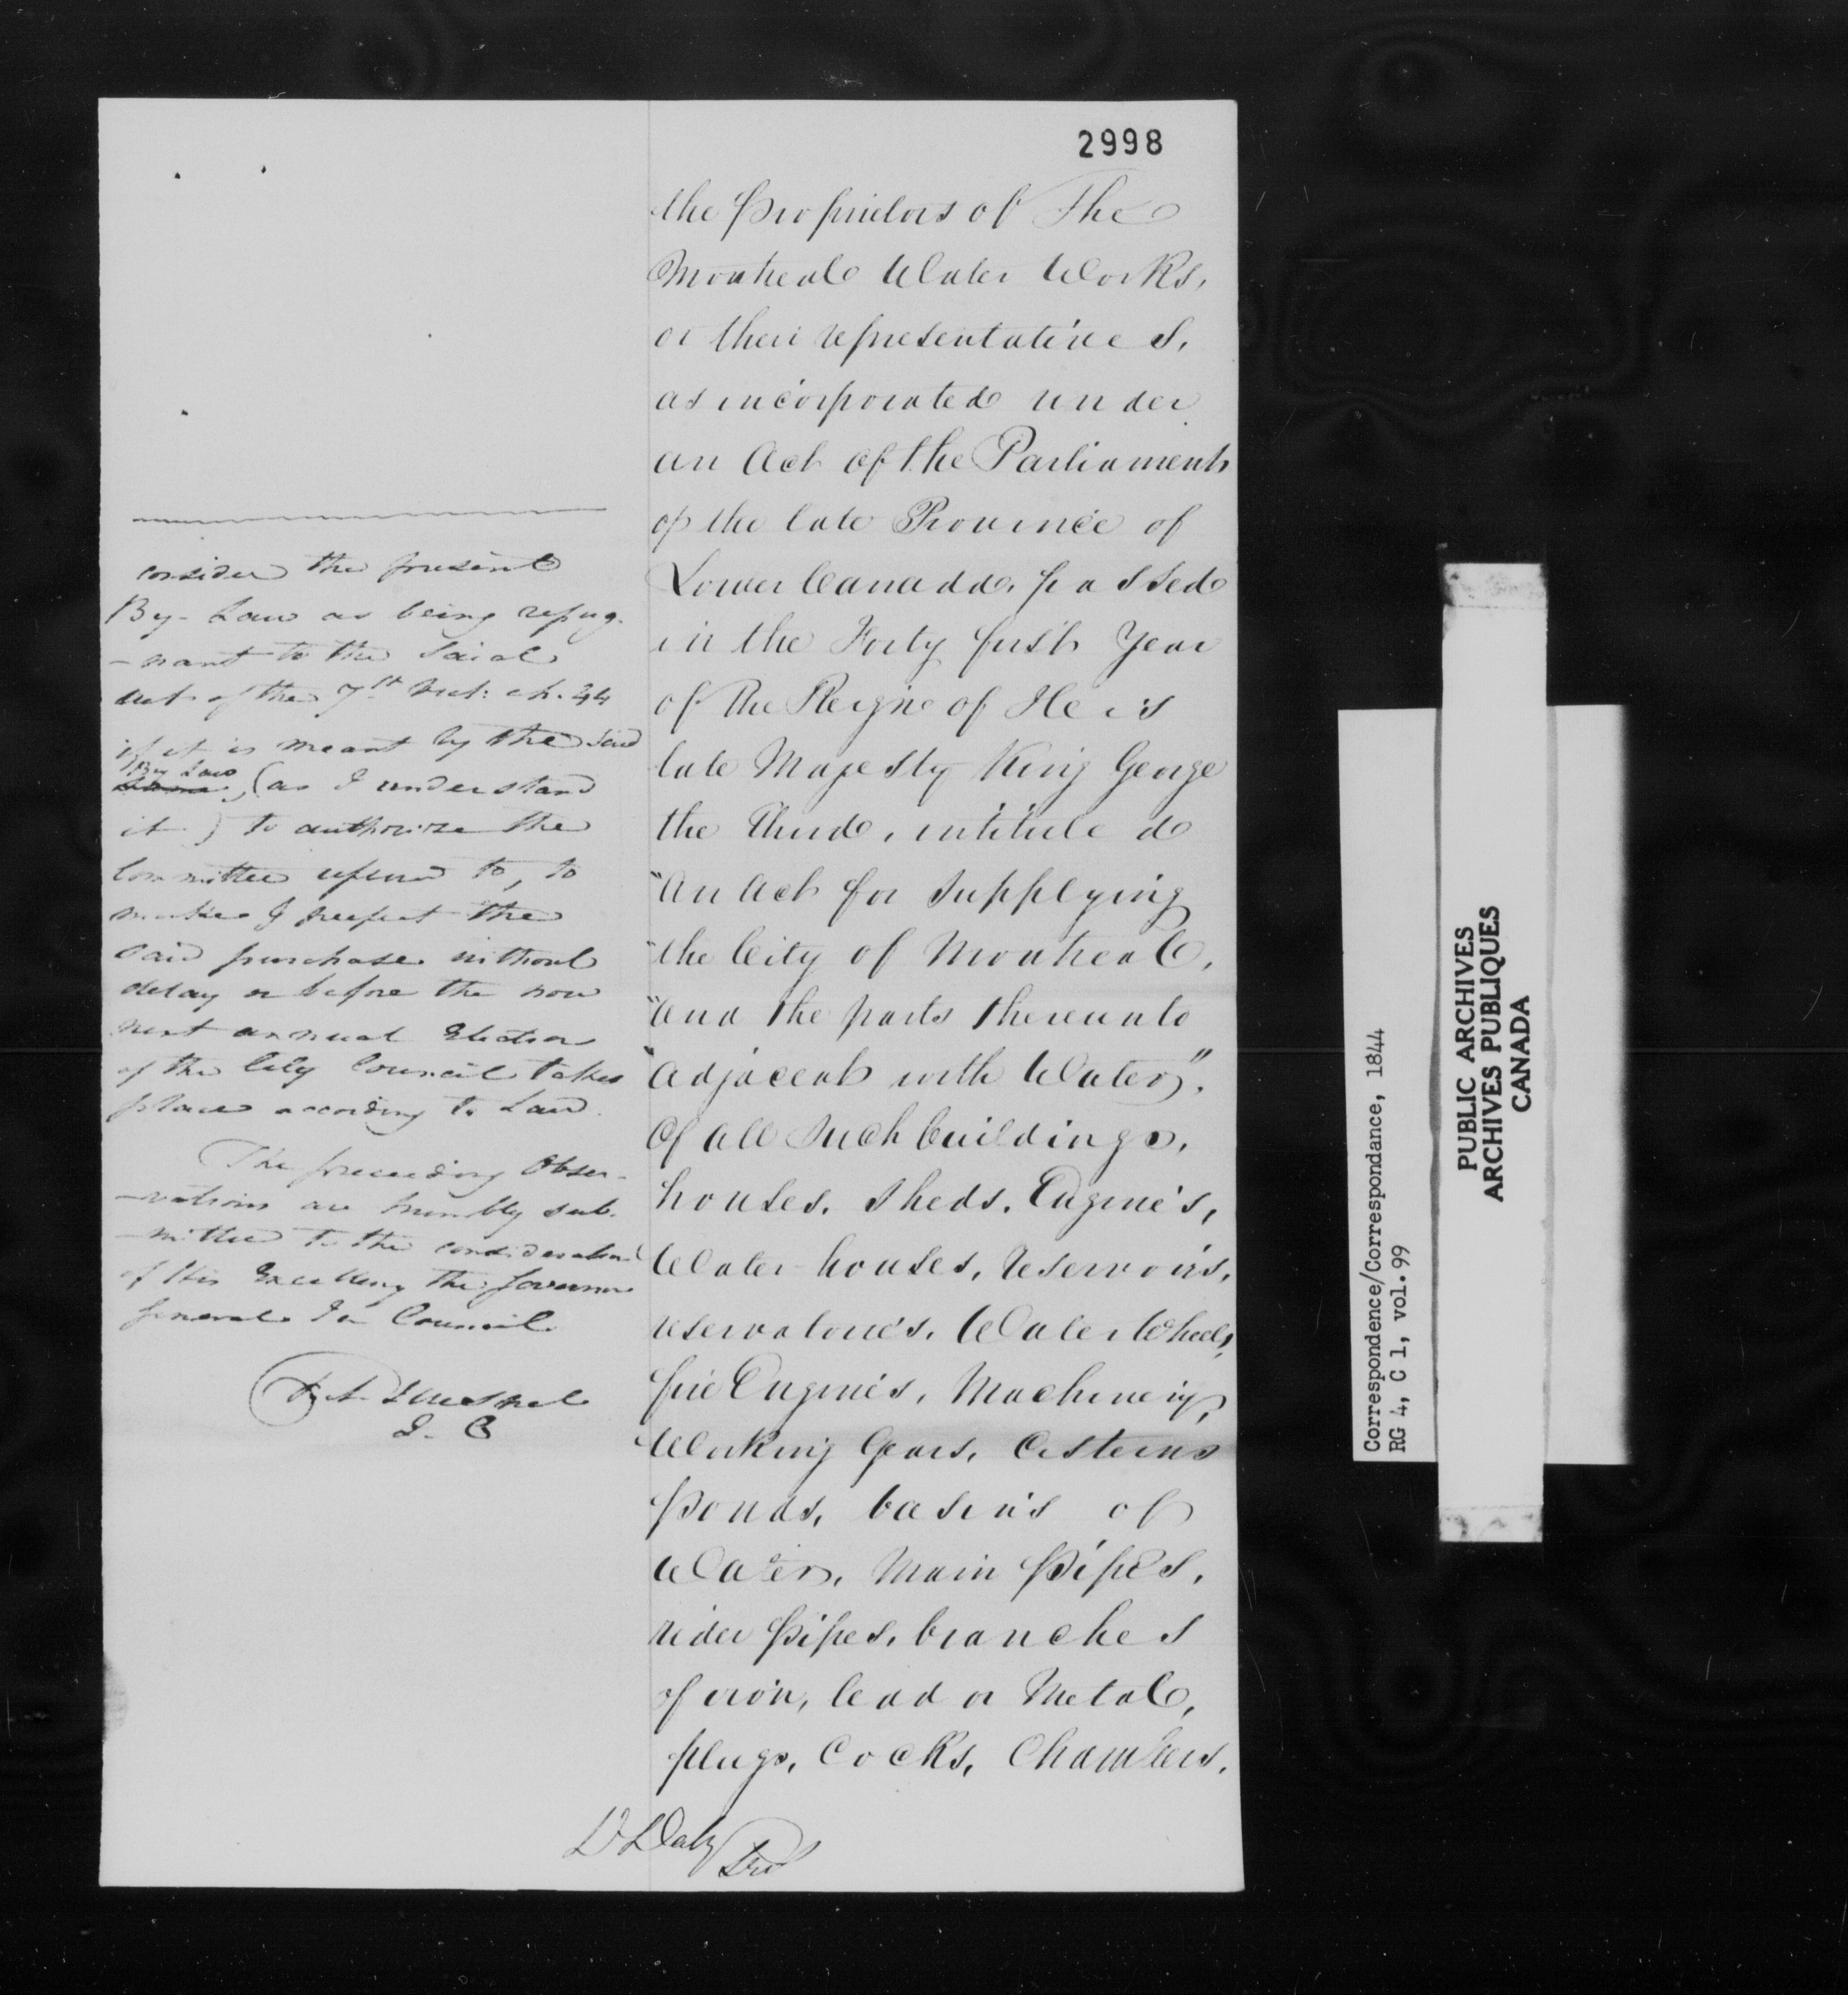 2998
the proprietors of The
Montreal Water Works,
or their representatives,
as incorporated under
an Act of the Parliament
of the late Province of
Lower Canada, passed
in the Forty first Year
of the Reign of His
late Majesty King George
the Third, intituled
"An Act for supplying
"the City of Montreal,
"and the parts thereunto
"adjacent with Water",
Of all such buildings,
houses, sheds, Engines,
Water houses, reservoirs,
reservatories, Water Wheels,
fire Engines, Machinery,
Working Gears, Cisterns
ponds, basins of
Water, Main pipes,
rider pipes, branches
of iron, lead or Metal,
plugs, Cocks, Chambers,
consider the present
By-Law as being repug-
-nant to the said
act of the 7th Vict: ch. 44
if it is meant by the said
By Law, (as I understand
it) to authorize the
Committee referred to, to
make & perfect the
said purchase without
delay or before the now
next annual Election
of the City Council takes
place according to Law.
The preceeding Obser-
-vations are humbly sub-
-mitted to the consideration
of His Excellency the Governor
General In Council
D Daly
Correspondence/Correspondance, 1844
RG 4, C 1, vol.99
PUBLIC ARCHIVES
ARCHIVES PUBLIQUES
CANADA